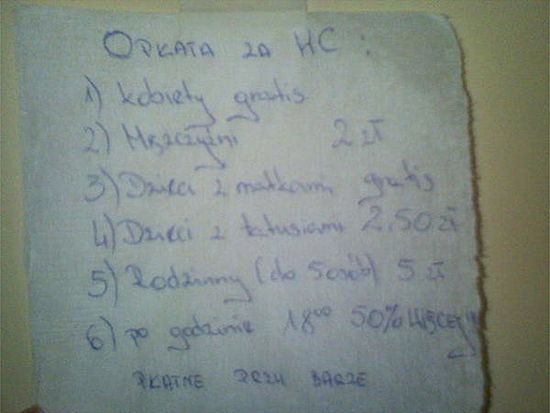 OPŁATA ZA WC:
1) kobiety gratis
2) Mężczyźni 2 zł
3) Dzieci z matkami gratis
4) Dzieci z tatusiami 2,50 zł
5) Rodzinny (do 5 osób) 5 zł
6) po godzinie 18⁰⁰ 50% WIĘCEJ!!
PŁATNE PRZY BARZE